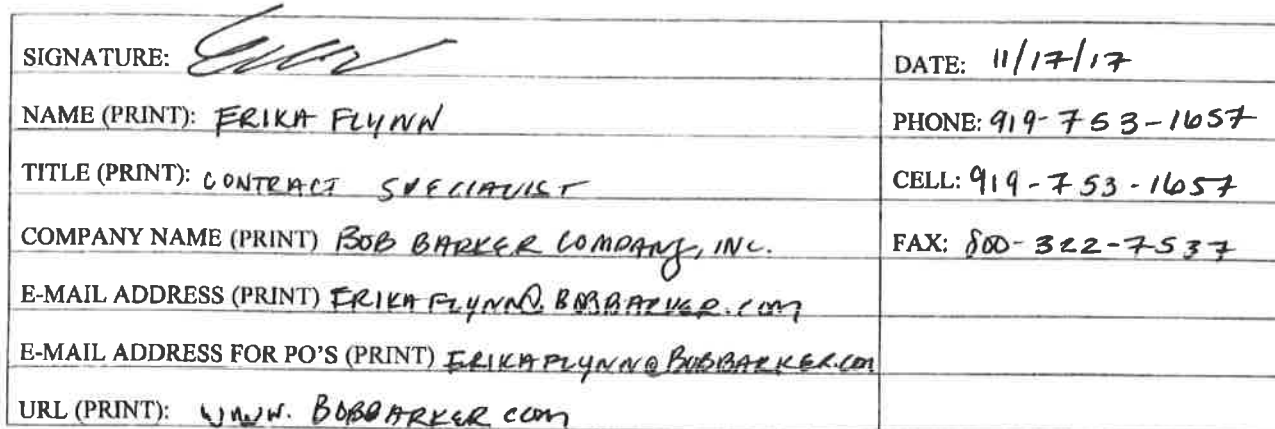 SIGNATURE:
DATE: 11/17/17
NAME (PRINT): ERIKA FLYNN
PHONE: 919-753-1657
TITLE (PRINT): CONTRACT SPECIALIST
CELL: 919-753-1657
COMPANY NAME (PRINT) BOB BARKER COMPANY, INC.
FAX: 800-322-7537
E-MAIL ADDRESS (PRINT) ERIKAFLYNN@BOBBARKER.COM
E-MAIL ADDRESS FOR PO'S (PRINT) ERIKAFLYNN@BOBBARKER.COM
URL (PRINT): WWW.BOBBARKER COM